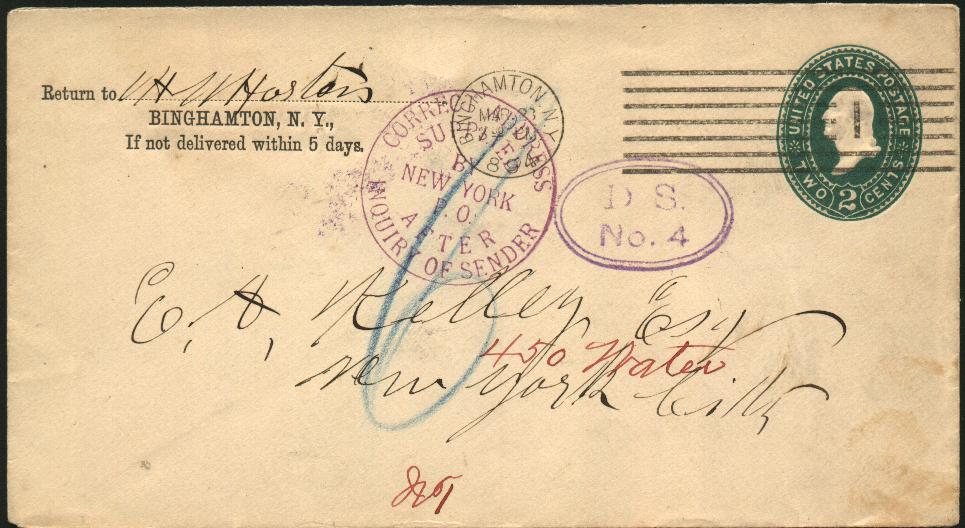 Return to W H W Horton
BINGHAMTON, N. Y.,
If not delivered within 5 days.
BINGHAMTON, N.Y.
94
UNITED STATES POSTAGE
TWO 2 CENTS
CORRECT ADDRESS
SUPPLIED
BY
NEW YORK
P. O.
AFTER
INQUIRY OF SENDER
D S.
No. 4
E. A. Kelley, Esq
450 Water
New York City